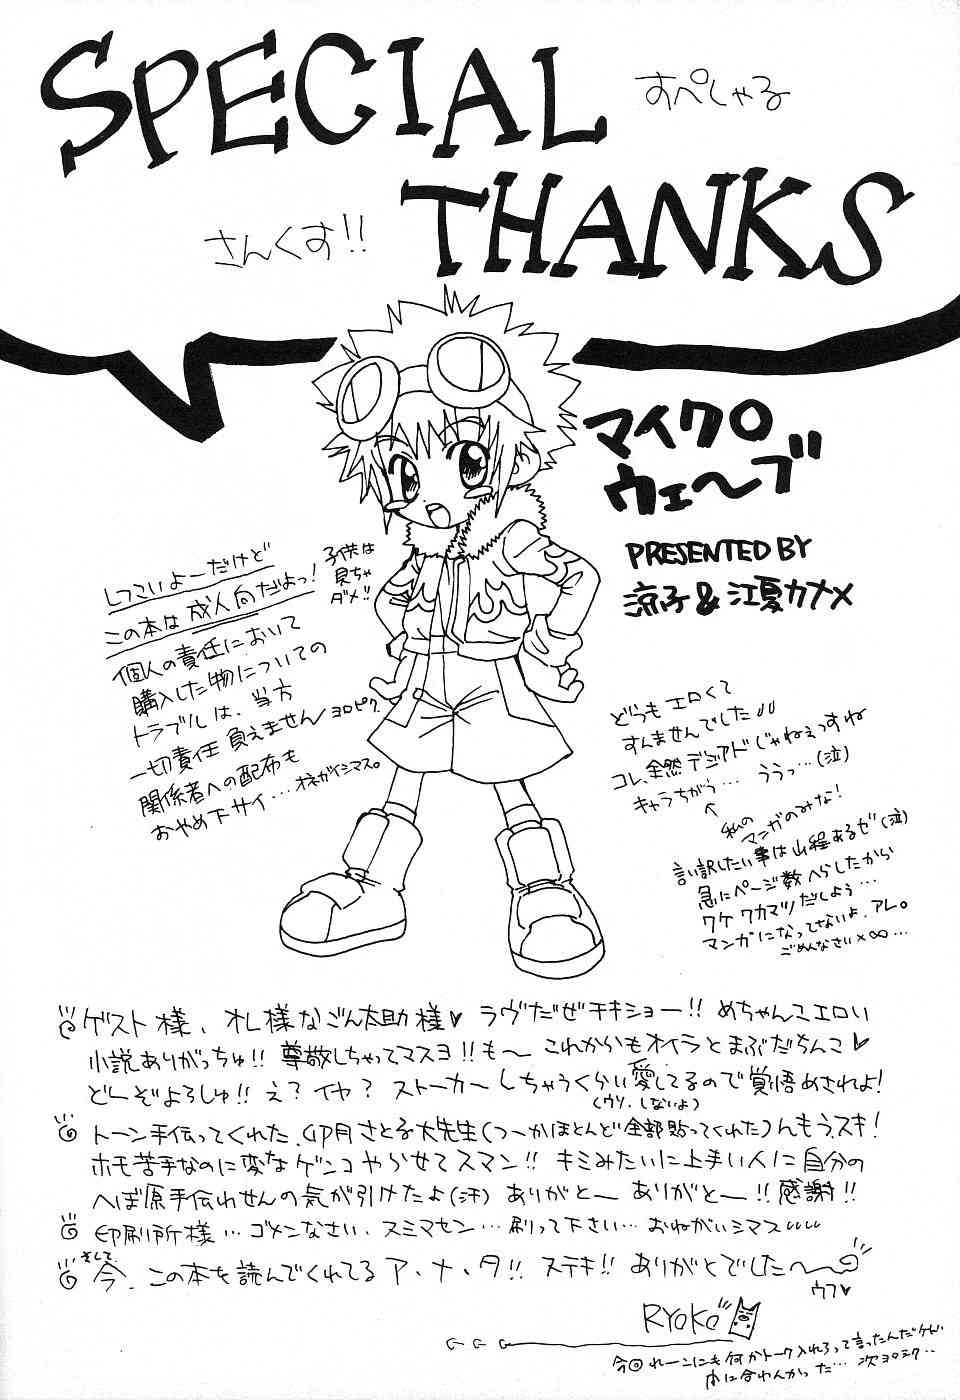 SPECIAL
すぺしゃる
THANKS
さんくす!!
マイクロ
ウェ〜ブ
PRESENTED BY
涼子&江夏カナメ
しつこいよーだけど
この本は成人向だよっ!
子供は
見ちゃ
ダメ!!
個人の責任において
購入した物についての
トラブルは、当方
一切責任 負えません ヨロピク
関係者への配布も
おやめ下サイ…オネガイシマス。
どうもエロくて
すんませんでした
コレ、全然デジアドじゃねぇっすね
キャラちがう… ううっ…(泣)
私の
マンガのみな!
言い訳したい事は山程あるゼ(泣)
急にページ数へらしたから
ワケワカマツだしよう…
マンガになってないよ、アレ。
ごめんなさい×∞…
ゲスト様、オレ様なごん太助様♥ ラヴだぜチキショー!! めちゃんこエロい
小説ありがっちゅ!! 尊敬しちゃってマスヨ!!も〜 これからもオイラとまぶだちんこ♥
どーぞよろしゅ!! え?イヤ? ストーカーしちゃうくらい愛してるので覚悟めされよ!
(ウソ.しないよ)
トーン手伝ってくれた、卯月さとる大先生(つーかほとんど全部貼ってくれた)んもうスキ!
ホモ苦手なのに変なゲンコやらせてスマン!! キミみたいに上手い人に自分の
へぼ原手伝わせんの気が引けたよ(汗) ありがとー ありがとー!!感謝!!
印刷所様…ゴメンなさい、スミマセン…刷って下さい…おねがいシマス
そして
今、この本を読んでくれてるア・ナ・タ!! ステキ!! ありがとでした〜
ウフ♥
RYOKO
今回れーこにも何かトーク入れろって言ったんだケド、
本に合わんかった… 次ヨロシク‥